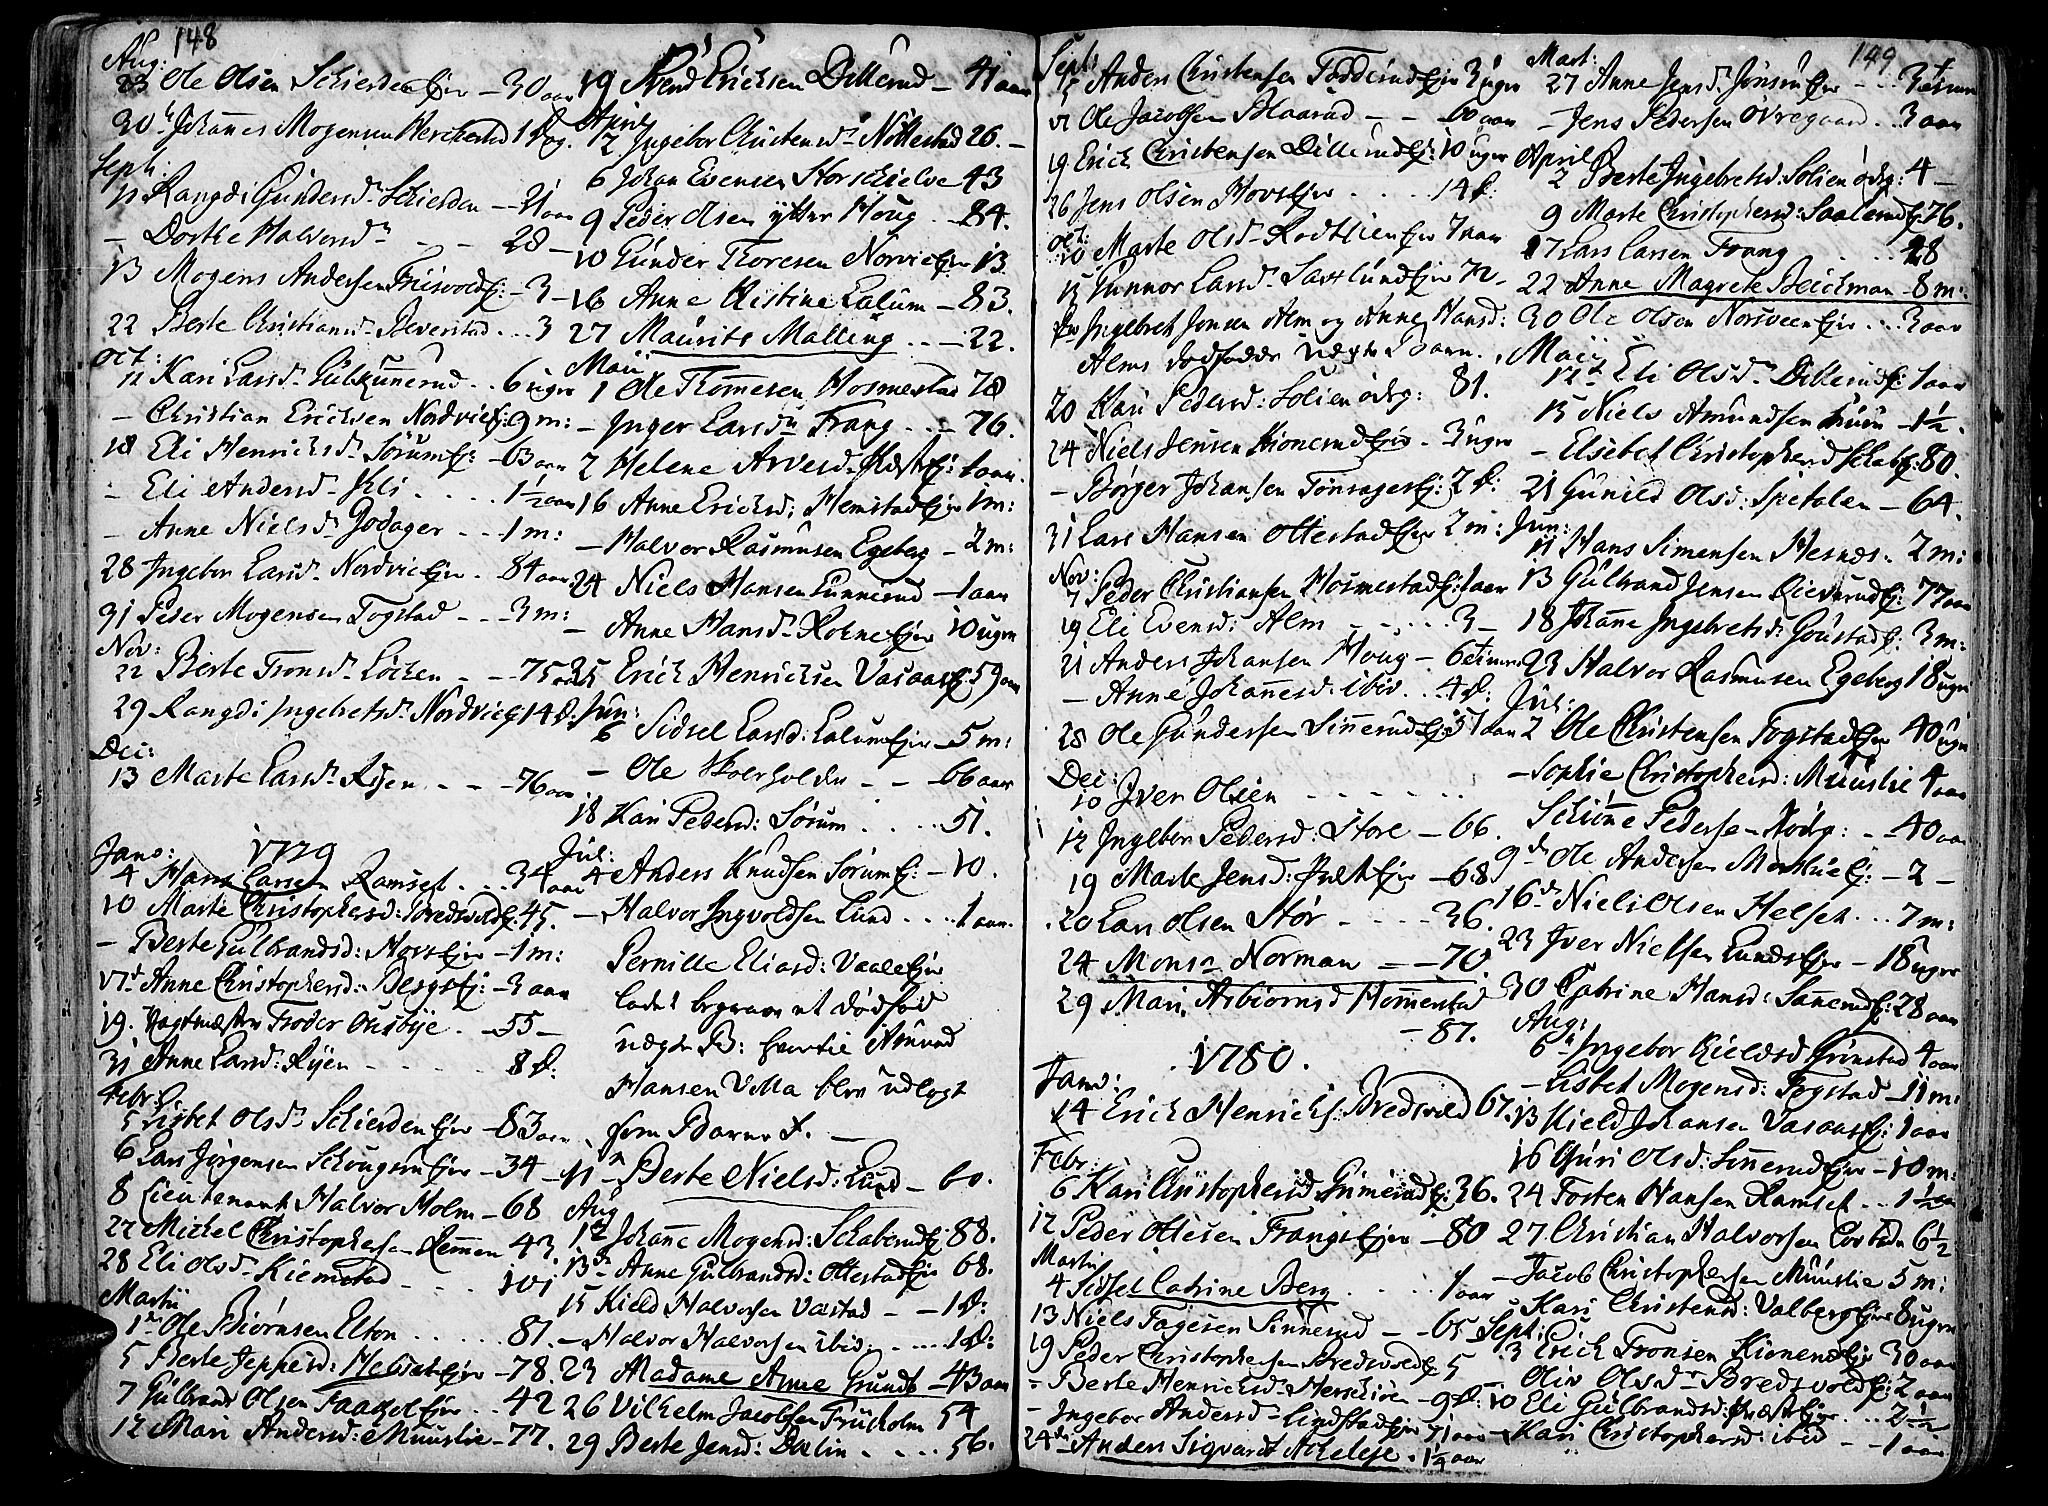 148
Aug:
23 Ole Olsen Schierden Ejer - 30 aar
30 Johanes Mogensen 1 Dog.
Sept:
11 Rangdi Gundersd. Schierden - 21 aar
- Dorthe Halvorsd. - - 28 -
13 Mogens Andersen Friisvold Ej: - 3 -
22 Berte Christiansd. Beverstad ... 3
Oct:
11 Kari Larsd. Gulkunerud .. 6 uger
- Christian Erichsen Nordvi Ej: 9 m:
18 Eli Henrichsd. Sørum Ej: - 63 aar
- Eli Andersd. .... 1½ aar
- Anne Nielsd. Godager ... 1 m:
28 Ingebor Larsd. Nordvi Ejer. 84 aar
31 Peder Mogensen Fogstad - - 3 m:
Nov:
22 Berte Tronsd. Løcken - - 75 aar
29 Rangdi Ingebretsd. Nordvi Ej: 14 d.
Dec:
13 Marte Larsd. Rysen - - - 76 aar
1779
Janv:
4 Hans Larsen Ramset ... 34 aar
10 Marte Christophersd: Bredsvold Ej. 45.
- Berte Gulbrandsd: Hovs Ejer - 1 m:
17 Anne Christophersd: Bergs Ej: - 3 aar
19. Vagtmester Troder Ousbye. - 55 -
31 Anne Larsd: Ryen - - - - 8 d:
Febr:
5 Lisbet Olsd. Schierden Ejer - 83 aar
6 Lars Jørgensen Ejer - 34 -
8 Lieutenant Halvor Holm - 68
22 Michel Christophersen Remmen 43.
28 Eli Olsd. Kiemstad - - - 101
Martii
1 Ole Biørnsen Elton ...... 81.
5 Berte Jeppesd: Helset Ejer - 78.
7 Gulbrand Olsen Ejer .. 42
12 Mari Andersd: Muuslie - 77.
19 Svend Erichsen Dillerud - 41 aar
April
12 Ingebor Christensd. Nøttestad 26. -
6 Johan Evensen Storschielve 43
9 Peder Olsen ytter Houg .. - 84.
10 Gunder Thoresen Norvi Ejer 13.
16 Anne Kistine Lalum - 83.
27 Maurits Malling .. - 22.
Maii
1 Ole Thomesen Hosmestad 78
- Inger Larsd. Frang ... - 76.
2 Helene Arvesd. Ej: 1 aar.
16 Anne Erichsd: Hemstad Ejer 1 m:
- Halvor Rasmusen Egeberg - 2 m:
24 Niels Hansen Lunnerud - 1 aar
- Anne Hansd. Rohne Ejer 10 uger
25 Erich Henrichsen Vasaas Ej: 59 aar
Jun:
6 Sidsel Larsd: Lalum Ejer - 5 m:
- Ole Skoleholder - - 66 aar
18 Kari Pedersd: Sørum .... 51.
Jul:
4 Anders Knudsen Sørum Ej: - 10.
- Halvor Ingvoldsen Lund .... 1 aar.
Pernille Eliasd: Vaale Ejer
ladet begrave et dødfød
uægte B: hvortil Amund
Hansen Vella blev udlagt
som Barne F. -
11 Berte Nielsd: Lund - 60.
Aug
1 Johane Mogensd: Schaberud Ej: 88.
13 Anne Gulbrandsd: Ottestad Ejer 68.
15 Kield Halvorsen Væstad - - 1 d:
- Halvor Halvorsen ibid: .... 1 d:
23 Madame Anne Grundt - 43 aar
26 Vilhelm Jacobsen Frueholm 54
29 Berte Jensd: Dælin .... 56.
149
Sept:
5 Anders Christensen Ejer 3 uger
12 Ole Jacobsen Blaarud - - 60 aar
19 Erich Christensen Dillerud Ej: 10 uger
26 Jens Olsen Hovs Ejer .... 14 d:
Oct:
10 Marte Olsd. Rodtlien Ejer 7 aar
12 Gunnor Larsd. Ejer 72 -
Ingebret Jonsen Alm og Anne Hansd:
Alms dødfødde uægte Barn.
20 Kari Pedersd: Solien ødeg: 81.
24 Niels Jensen Kionerud Ejer . 3 uger
- Børger Johansen Tønsager Ej: 2 d:
31 Lars Hansen Ottestad Ejer 2 m:
Nov:
7 Peder Christiansen Hosmestad Ej: 1 aar
19 Eli Evensd: Alm - - ... 3 -
21 Anders Johansen Houg - 6 timer
- Anne Johanesd: ibid .. 4 d:
28 Ole Gundersen Sinnerud Ej: 51 aar
Dec:
10 Iver Olsen - - - - - -
12 Ingebor Pedersd: Store - 66.
19 Marte Jensd: Ejer - 68
20 Lars Olsen Stør - - - - 36.
24 Monsr. Norman - - 70
29 Mari Asbiørnsd Hommerstad
- 87.
1780.
Janv:
14 Erich Henrichs: Bredsvold 67.
Febr:
6 Kari Christophersd: Grimerud Ej: 36.
12 Peder Ottesen Frangs Ejer - 80
Martii
4 Sidsel Catrine Berg .... 1 aar
13 Niels Fagesen Sinnerud - - 65
19 Peder Christophersen Bredsvold Ej: 5
- Berte Henrichsd. - 9 d:
- Ingebor Andersd. Lindstad Ejer 71 aar
24 Anders Siqvardt Achelese . 1¼ aar
Mart:
27 Anne Jensd. Jonsrud Ejer - .. 3 timer
- Jens Pedersen Øvregaard .. 3 aar
April
2 Berte Ingebretsd: Solien ødeg: 4 -
9 Marte Christophersd: Saalerud Ej: 76.
17 Lars Larsen Frang ..... 28
22 Anne Magrete Beichman - 8 m:
30 Ole Olsen Norsveen Ejer ... 3 aar
Maij
12 Eli Olsd. Dillerud Ej: 1 aar
15 Niels Amundsen Huun - 1½.
- Elsebet Christophersd Ej: 80.
21 Gunild Olsd: Spetalen - 64.
Jun:
11 Hans Simensen Hesnæs. 2 m:
13 Gulbrand Jensen Ej: 77 aar
18 Johane Ingebretsd. Goustad Ej: 3 m:
23 Halvor Rasmusen Egeberg 18 uger
Jul:
2 Ole Christensen Fogstad Ejer 40 uger
- Sophie Christophersd: Muuslie 4 aar
Schiøne Pederse - ødeg: .. 40 aar
9 Ole Andersen Ej: - 2 -
16 Niels Olsen Helset ... 7 m:
23 Iver Nielsen Lunds Ejer - 18 uger
30 Catrine Hansd: Ej: 28 aar
Aug:
6 Ingebor Kieldsd Grimstad 4 aar
- Lisbet Mogensd: Fogstad - 11 m:
13 Kield Johansen Vasaas Ej: 1 aar
16 Guri Olsd: Sinnerud Ejer - 10 m:
24 Tosten Hansen Ramset .. 1½ aar
27 Christian Halvorsen 6½
- Jacob Christophersen Muuslie 5 m:
- Kari Christensd: Valberg Ejer 8 uger
Sept:
3 Erich Tronsen Kionerud Ejer 30 aar
- Oliv Olsd. Bredsvold Ej: 2 aar
10 Eli Gulbrandsd: Præst Ejer ... 2½
- Kari Christophersd: ibid - - 1 aar